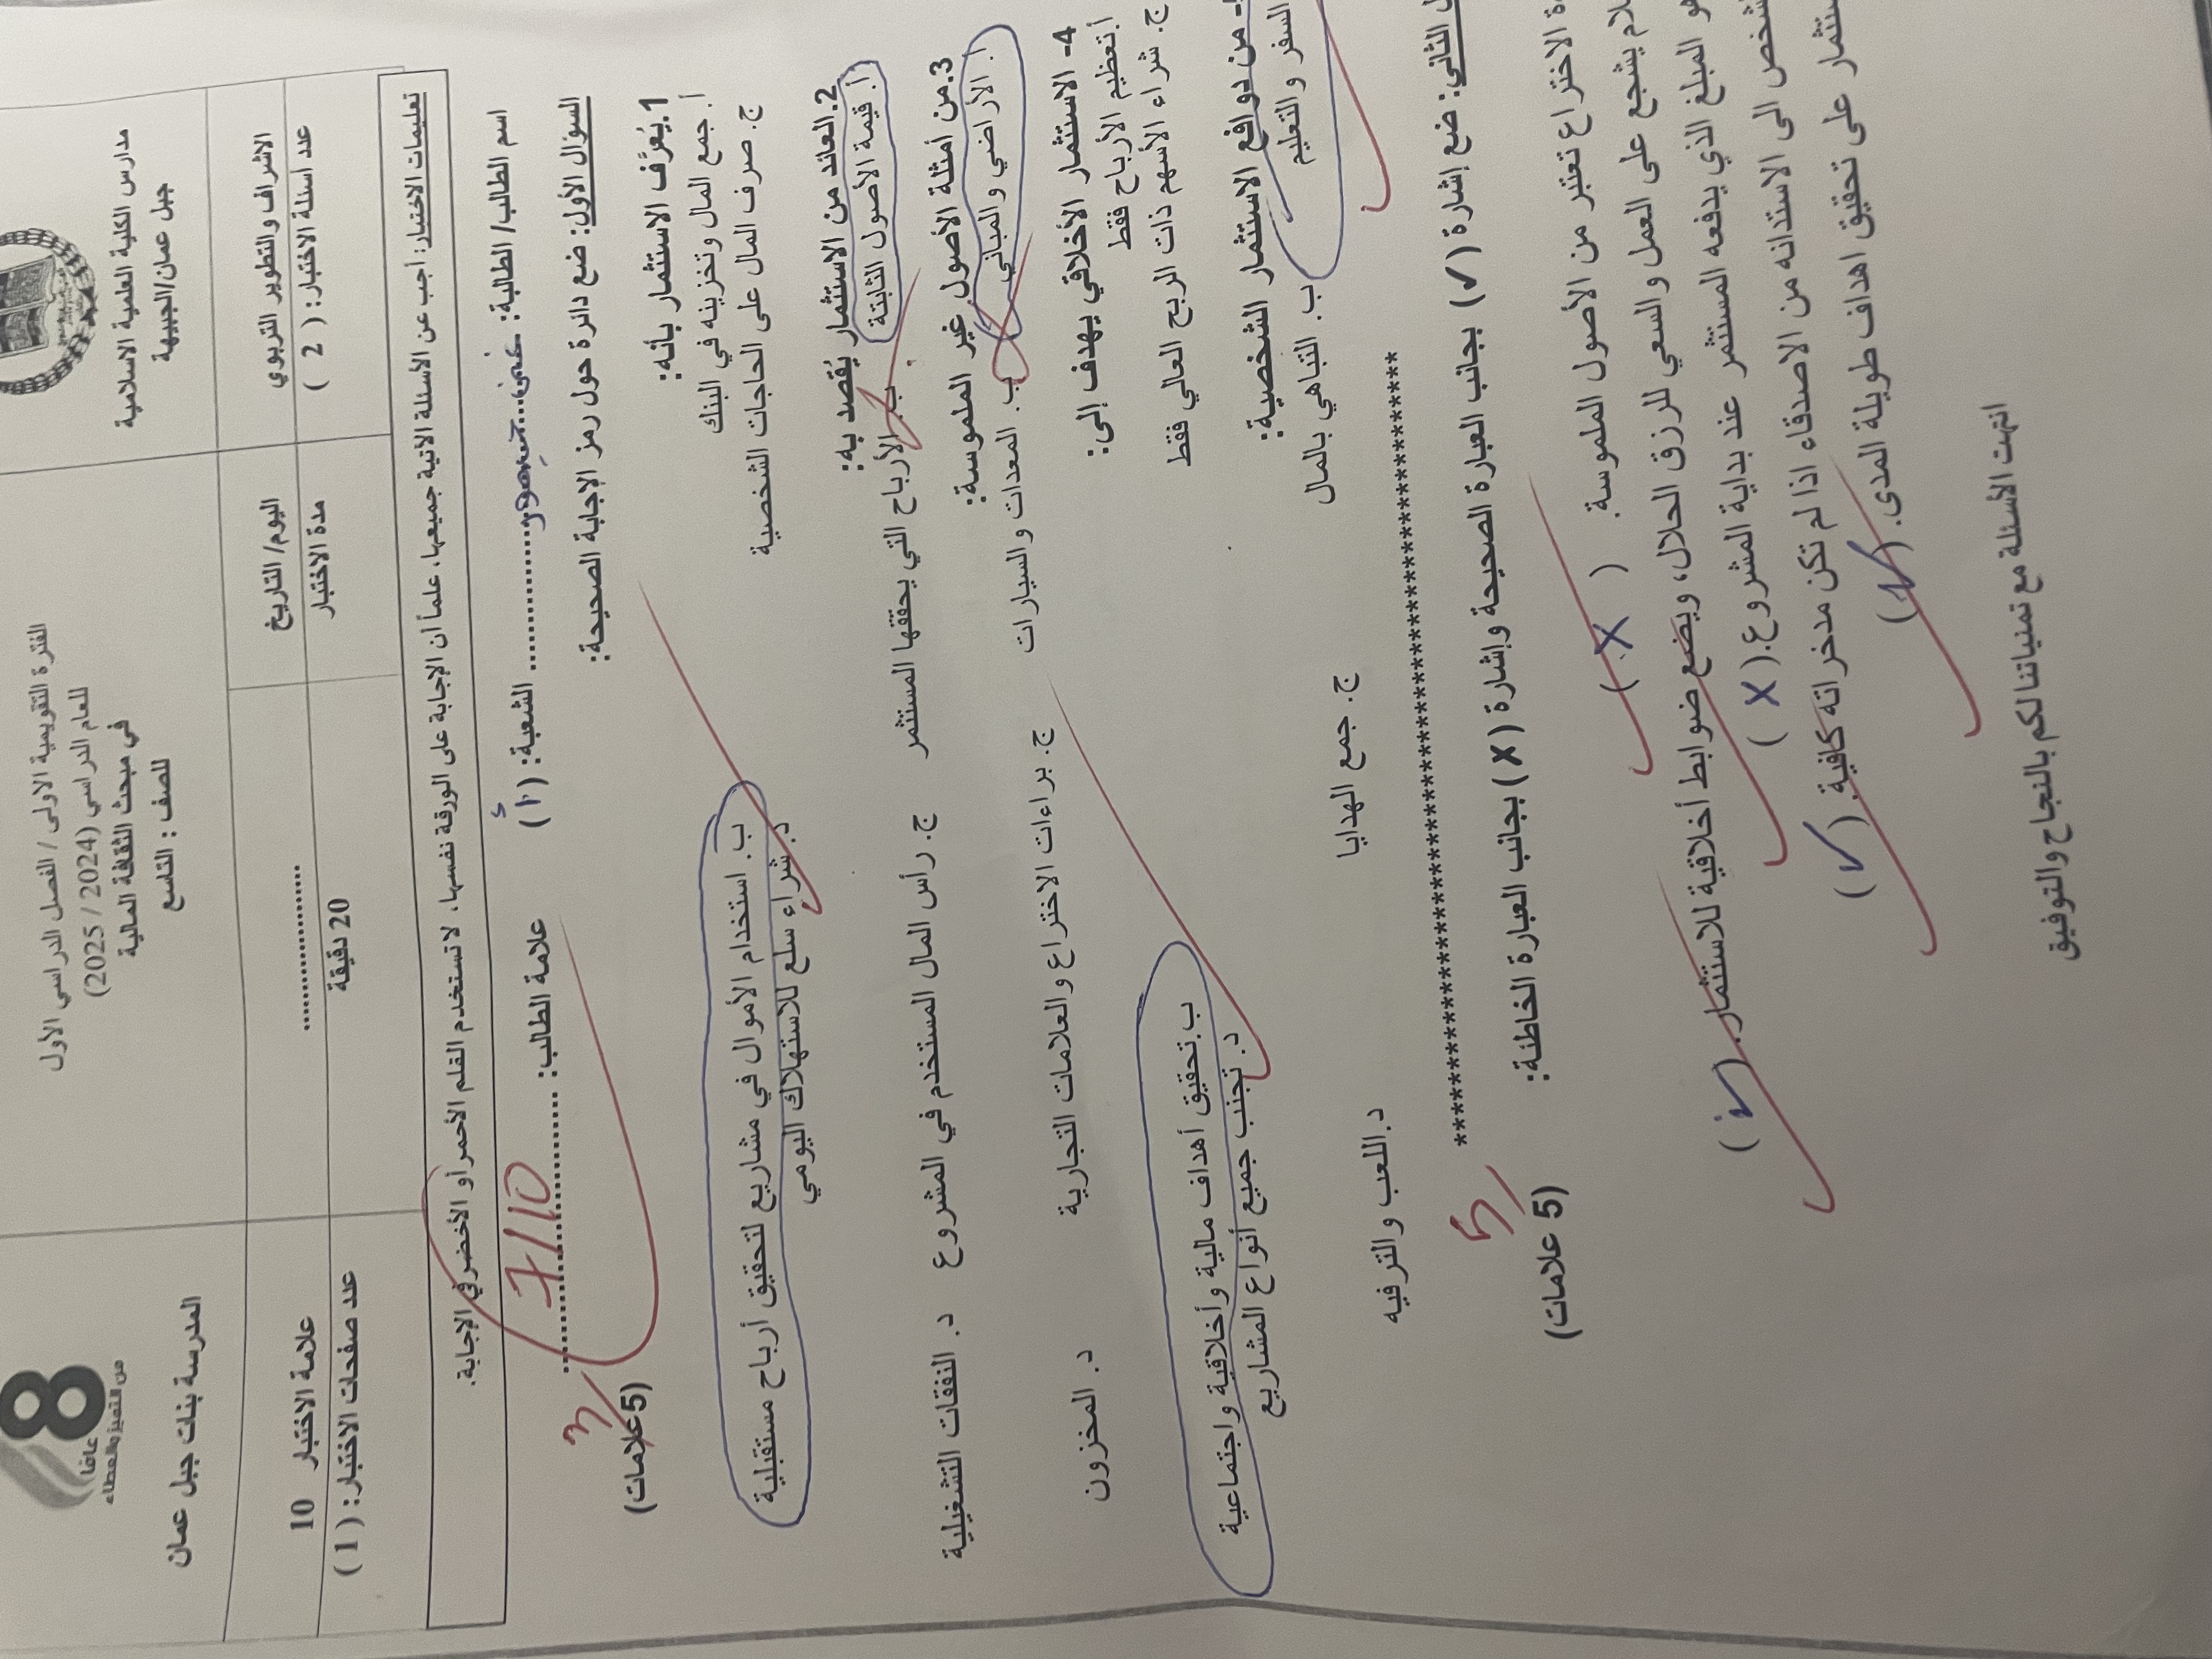 مدارس الكلية العلمية الاسلامية
جبل عمان/الجبيهة
الفترة التقويمية الاولى / الفصل الدراسي الأول
للعام الدراسي (2024 / 2025)
في مبحث الثقافة المالية
للصف : التاسع
عامًا
من التميز والعطاء
المدرسة بنات جبل عمان
الاشراف والتطوير التربوي
اليوم/ التاريخ
..................
علامة الاختبار 10
عدد اسئلة الاختبار: ( 2 )
مدة الاختبار
20 دقيقة
عدد صفحات الاختبار: ( 1 )
تعليمات الاختبار: أجب عن الأسئلة الآتية جميعها، علماً أن الإجابة على الورقة نفسها، لا تستخدم القلم الأحمر أو الأخضر في الإجابة.
اسم الطالب/ الطالبة: الشعبة: (أ) علامة الطالب: 7/10
السؤال الأول: ضع دائرة حول رمز الإجابة الصحيحة: (5علامات) 3
1.يُعرَّف الاستثمار بأنه:
أ. جمع المال وتخزينه في البنك ب. استخدام الأموال في مشاريع لتحقيق أرباح مستقبلية
ج. صرف المال على الحاجات الشخصية د. شراء سلع للاستهلاك اليومي
2.العائد من الاستثمار يُقصد به:
أ. قيمة الأصول الثابتة ب. الأرباح التي يحققها المستثمر ج. رأس المال المستخدم في المشروع د. النفقات التشغيلية
3.من أمثلة الأصول غير الملموسة:
أ. الأراضي والمباني ب. المعدات والسيارات ج. براءات الاختراع والعلامات التجارية د. المخزون
4- الاستثمار الأخلاقي يهدف إلى:
أ.تعظيم الأرباح فقط ب.تحقيق أهداف مالية وأخلاقية واجتماعية
ج. شراء الأسهم ذات الربح العالي فقط د. تجنب جميع أنواع المشاريع
- من دوافع الاستثمار الشخصية:
السفر والتعليم ب. التباهي بالمال ج. جمع الهدايا د.اللعب والترفيه
********************************************************
الثاني: ضع إشارة (✓) بجانب العبارة الصحيحة وإشارة (✗) بجانب العبارة الخاطئة: (5 علامات) 5
الاختراع تعتبر من الأصول الملموسة . ( X )
يشجع على العمل والسعي للرزق الحلال، ويضع ضوابط أخلاقية للاستثمار. (✓)
المبلغ الذي يدفعه المستثمر عند بداية المشروع.( X )
الى الاستدانه من الاصدقاء اذا لم تكن مدخراته كافية. (✓)
على تحقيق اهداف طويلة المدى. (✓)
انتهت الأسئلة مع تمنياتنا لكم بالنجاح والتوفيق